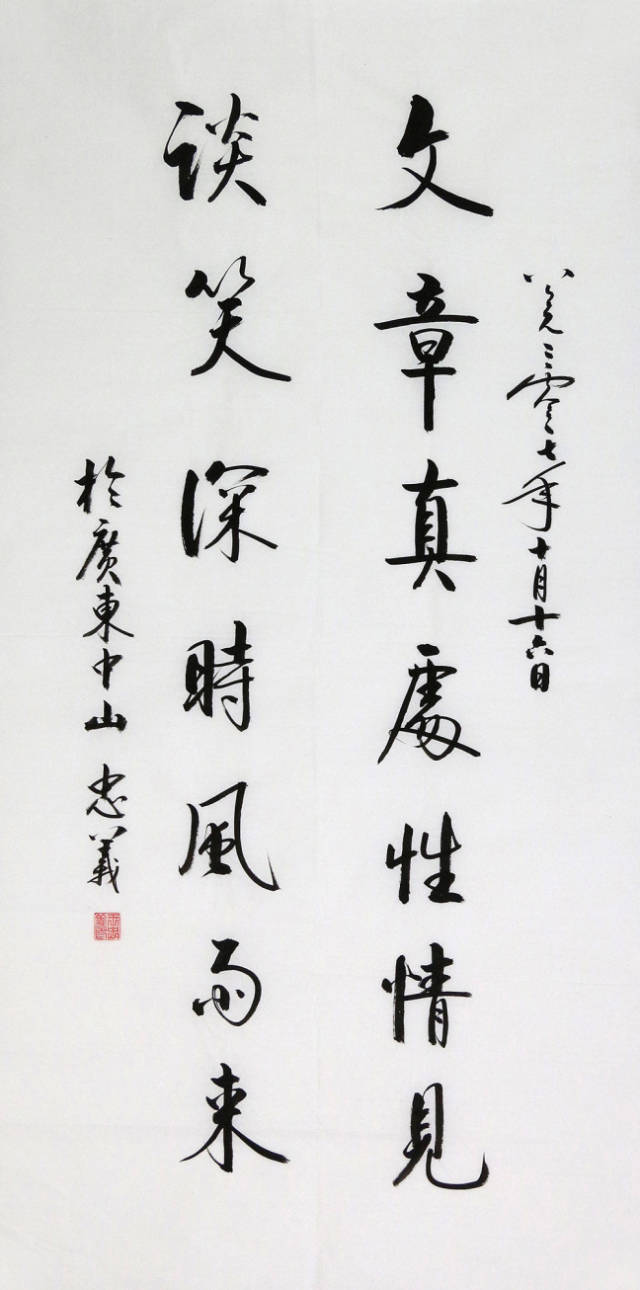 公元二零一七年十月十六日
文章真處性情見
談笑深時風雨来
於廣東中山 忠義